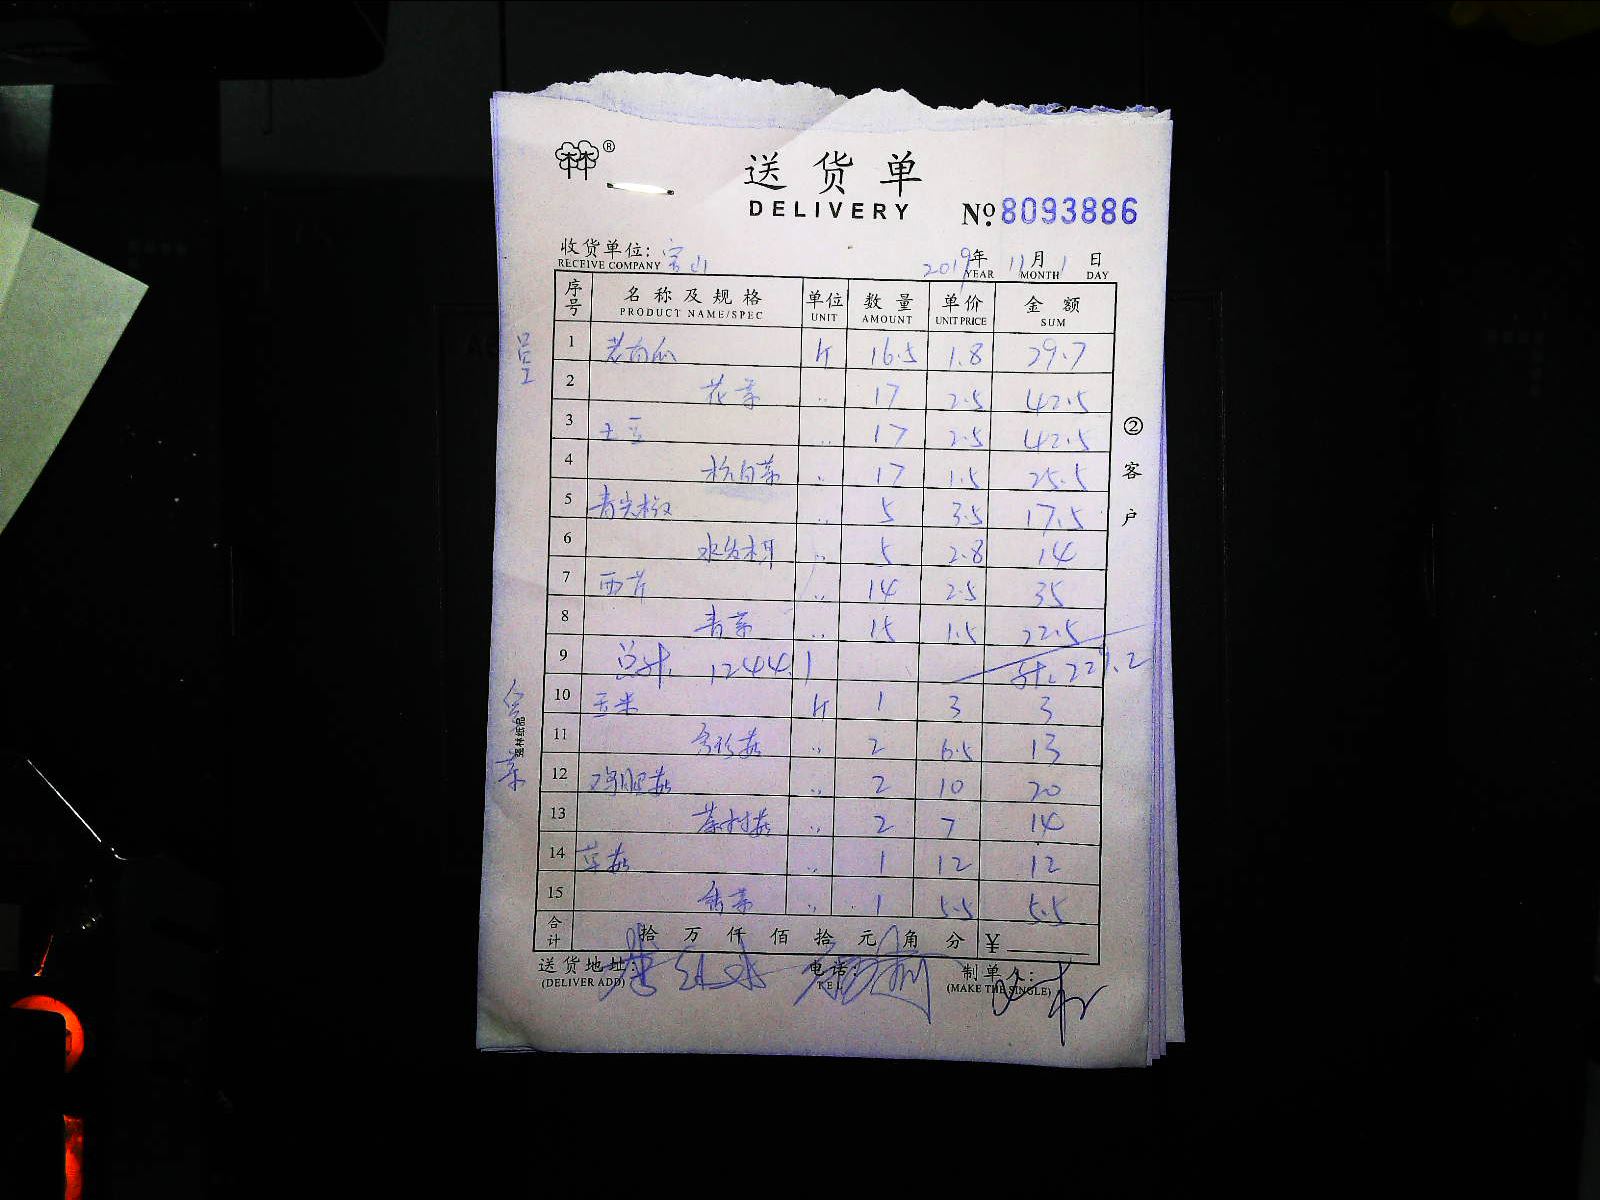 林®
送货单
DELIVERY
№ 8093886
收货单位: 宝山 2019年 11月 1日
RECEIVE COMPANY YEAR MONTH DAY
序号 名称及规格 单位 数量 单价 金额
PRODUCT NAME/SPEC UNIT AMOUNT UNIT PRICE SUM
员工
1 老南瓜 斤 16.5 1.8 29.7
2 花菜 〃 17 2.5 42.5
3 土豆 〃 17 2.5 42.5
4 杭白菜 〃 17 1.5 25.5
5 青尖椒 〃 5 3.5 17.5
6 水发木耳 〃 5 2.8 14
7 西芹 〃 14 2.5 35
8 青菜 〃 15 1.5 22.5
9 总计. 1244.1 计. 229.2
10 玉米 斤 1 3 3
11 秀珍菇 〃 2 6.5 13
12 鸡腿菇 〃 2 10 20
13 茶树菇 〃 2 7 14
14 草菇 〃 1 12 12
15 〃 1 5.5 5.5
合计 拾 万 仟 佰 拾 元 角 分 ¥
送货地址: 电话: 制单人:
(DELIVER ADD) TEL (MAKE THE SINGLE)
②客户
强林纸品